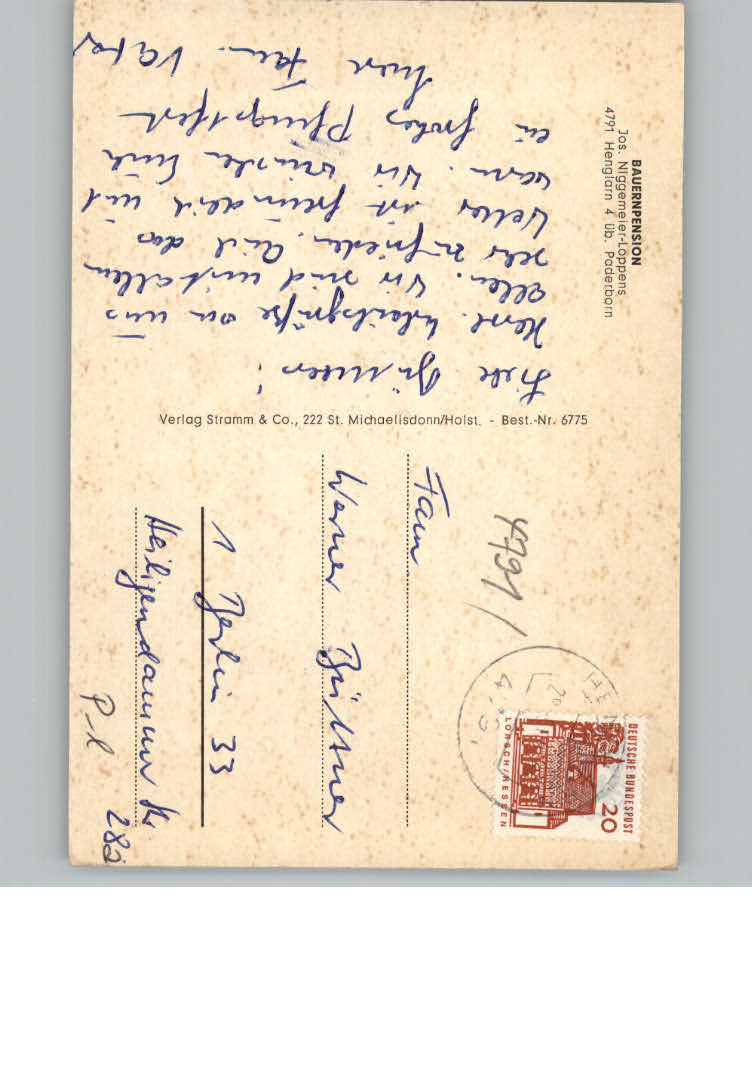 BAUERNPENSION
Jos. Niggemeier-Löppens
4791 Henglarn 4 üb. Paderborn
Liebe Büttners!
Herzl. Urlaubsgrüße an uns
allen. Wir sind mit allem
sehr zufrieden. Auch das
Wetter ist freundlich und
warm. Wir wünschen Euch
ein frohes Pfingstfest
Eure Fam.
Verlag Stramm & Co., 222 St. Michaelisdonn/Holst. - Best.-Nr. 6775
4791
Fam
Werner Büttner
1 Berlin 33
Heiligendammer Str
28a
DEUTSCHE BUNDESPOST
20
LORSCH/HESSEN